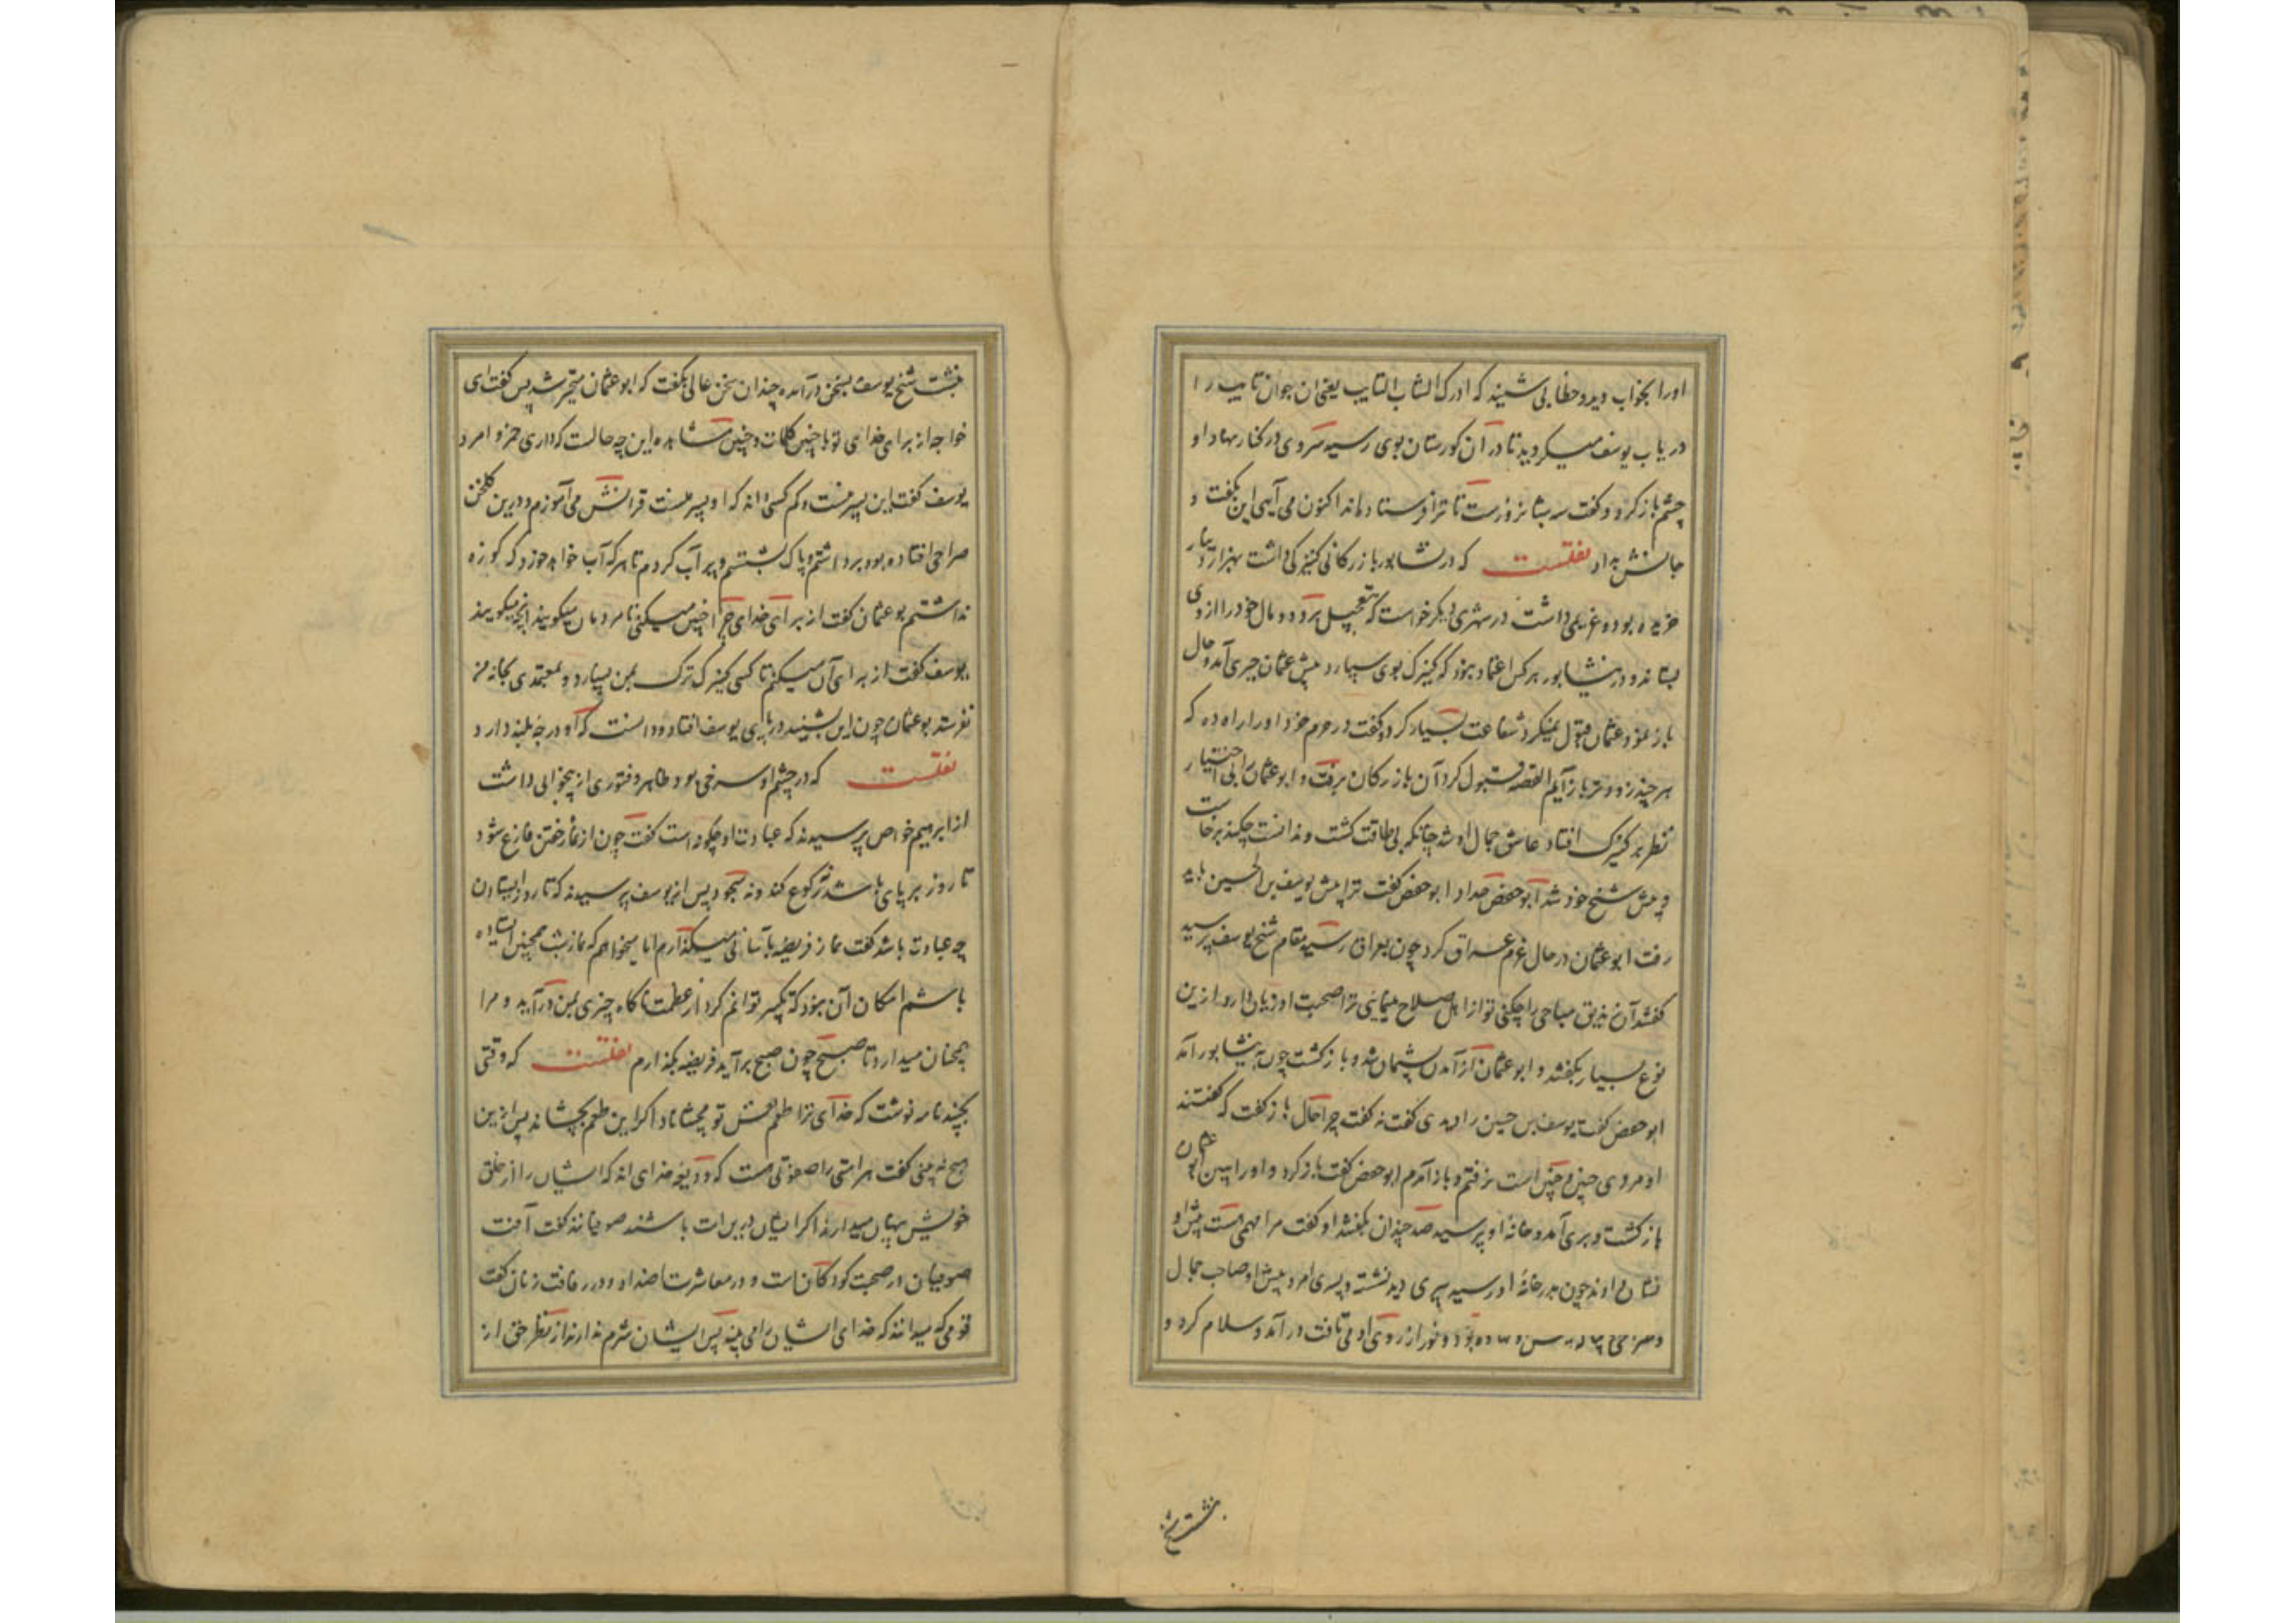 اورا بخواب دید و خطابی شنید که ادرک الشاب التایب یعنی آن جوان تایب را
دریاب یوسف میکردید تا در آن کورستان بوی رسید سر وی در کنار نهاد او
چشم باز کرد و کفت سه شبانروزست تا ترا فرستاده اند اکنون می آیی این بکفت و
جانش بداد نقلست که در نشابور بازرکانی کنیزکی داشت بهزار دینار
خریده بود و غریمی داشت در شهری دیکر خواست که بتعجیل برود و مال خود را از وی
بستاند و در نیشابور بر کس اعتماد نبود که کنیزک بوی سپارد پیش عثمان حیری آمد و حال
باز نمود عثمان قبول نمیکرد شفاعت بسیار کرد و کفت در حرم خود او را راه ده که
هر چند زودتر باز آیم القصه قبول کرد آن بازرکان برفت و ابو عثمان را بی اختیار
نظر بر کنیزک افتاد عاشق جمال او شد چنانکه بی طاقت کشت و ندانست چکند برخاست
و پیش شیخ خود شد ابو حفص حداد ابو حفص کفت ترا پیش یوسف بن الحسین باید
رفت ابو عثمان در حال عزم عراق کرد چون بعراق رسید مقام شیخ یوسف پرسید
کفتند آن زندیق مباحی را چکنی تو از اهل صلاح مینمایی ترا صحبت او زیان دارد ازین
نوع بسیار بکفتند و ابو عثمان از آمدن پشیمان شد و باز کشت چون به نیشابور آمد
ابو حفص کفت یوسف بن حسین را دیدی کفت نه کفت چرا حال باز کفت که کفتند
او مردی چنین و چنین است نرفتم و باز آمدم ابو حفص کفت باز کرد و او را ببین ابو عثمان
باز کشت و بری آمد و خانهٔ او پرسید صد چندان بکفتند او کفت مرا مهمی هست پیش او
نشان دادند چون بدر خانهٔ او رسید پیری دید نشسته و پسری امرد پیش او صاحب جمال
بود و نور از روی او می تافت در آمد و سلام کرد و
بنشست شیخ
بنشست شیخ یوسف بسخن در آمد و چندان سخن عالی بکفت که ابو عثمان متحیر شد پس کفت ای
خواجه از برای خدای تو با چنین کلمات و چنین مشاهده این چه حالت که داری خمر و امرد
یوسف کفت این پسر منست و کم کسی داند که او پسر منست قرآنش می آموزم و درین کلخن
صراحی افتاده بود برداشتم و پاک بشستم و پر آب کردم تا هر که آب خواهد خورد که کوزه
نداشتم بو عثمان کفت از برای خدای چرا چنین میکنی تا مردمان میکویند آنچه میکویند
یوسف کفت از برای آن میکنم تا کسی کنیزک ترک بمن نسپارد و بمعتمدی بخانه من
نفرستد بو عثمان چون این بشنید در پای یوسف افتاد و دانست که او درجهٔ بلند دارد
نقلست که در چشم او سرخی بود ظاهر و فتوری از بیخوابی داشت
از ابرهیم خواص پرسیدند که عبادت او چکونه است کفت چون از نماز خفتن فارغ شود
تا روز بر پای باشد نه رکوع کند و نه سجود پس از یوسف پرسیدند که تا روز ایستادن
چه عبادت باشد کفت نماز فریضه بآسانی میکذارم اما میخواهم که نماز شب همچنین ایستاده
باشم امکان آن نبود که تکبیر توانم کرد از عظمت ناکاه چیزی بمن در آید و مرا
همچنان میدارد تا صبح چون صبح برآید فریضه بکذارم نقلست که وقتی
بجنید نامه نوشت که خدای ترا طعم نفس تو مچشاناد اکر این طعم بچشاند پس ازین
هیچ نه بینی کفت هر امتی را صفوتی هست که ودیعت خدای اند که ایشان را از خلق
خویش پنهان میدارد اکر ایشان درین امت باشند صوفیانند کفت آفت
صوفیان در صحبت کودکان است و در معاشرت اضداد و در رفاقت زنان کفت
قومی که میدانند که خدای ایشان را می بیند پس ایشان شرم ندارند از نظر حق از